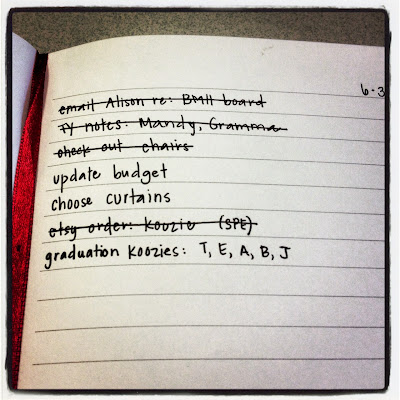 6-3
email Alison re: BMH board
TY notes: Mandy, Gramma
check out chairs
update budget
choose curtains
etsy order: koozie (SPE)
graduation koozies: T, E, A, B, J